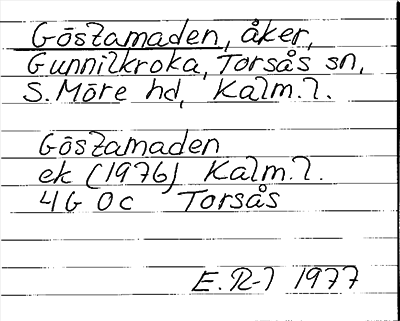 Göstamaden, åker,
Gunnilkroka, Torsås sn,
S. Möre hd, Kalm. l.
Göstamaden
ek (1976) Kalm. l.
4G 0c Torsås
E. R-l 1977